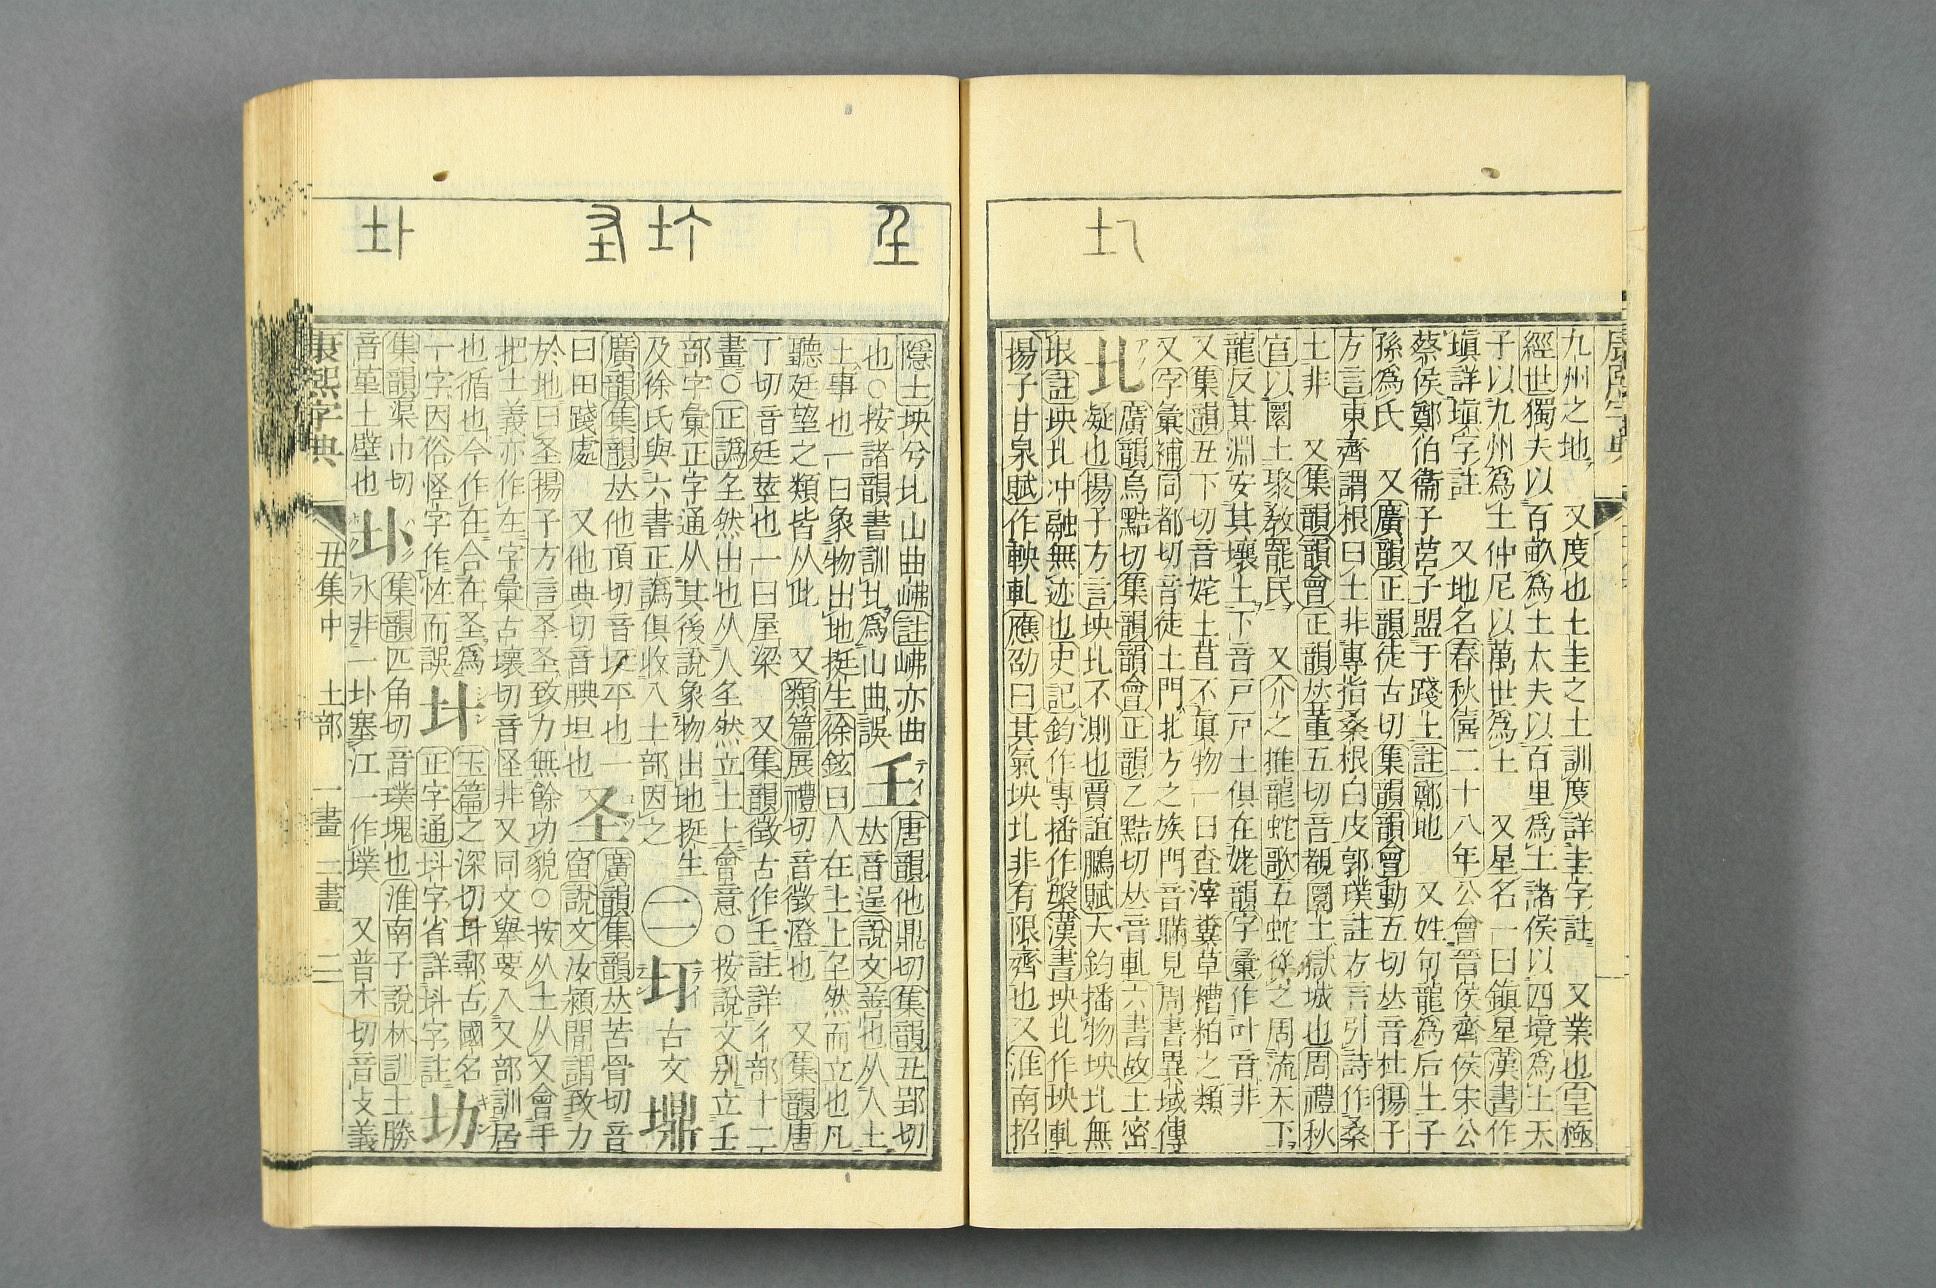 九州之地 又度也土圭之土訓度詳圭字註 又業也皇極
經世獨夫以百畝為土大夫以百里為土諸侯以四境為土天
子以九州為土仲尼以萬世為土 又星名一曰鎮星漢書作
塡詳塡字註 又地名春秋僖二十八年公會晉侯齊侯宋公
蔡侯鄭伯衞子莒子盟于踐土註鄭地 又姓句龍為后土子
孫為氏 又廣韻正韻徒古切集韻韻會動五切𠀤音杜揚子
方言東齊謂根曰土非專指桑根白皮郭璞註方言引詩作桑
土非 又集韻韻會正韻𠀤董五切音覩圜土獄城也周禮秋
官以圜土聚敎罷民 又介之推龍蛇歌五蛇從之周流天下
龍反其淵安其壤土下音戸戸土俱在姥韻字彙作叶音非
又集韻丑下切音姹土苴不眞物一曰查滓糞草糟粕之類
又字彙補同都切音徒土門北方之族門音瞞見周書異域傳
圠 廣韻烏黠切集韻韻會正韻乙黠切𠀤音軋六書故土密
凝也揚子方言坱圠不測也賈誼鵩賦大鈞播物坱圠無
垠註坱圠冲融無迹也史記鈞作專播作槃漢書坱圠作坱軋
揚子甘泉賦作軮軋應劭曰其氣坱圠非有限齊也又淮南招
隱士坱兮圠山曲岪註岪亦曲
也○按諸韻書訓圠為山曲誤 𡈼 唐韻他鼎切集韻丑郢切
𠀤音逞說文善也从人士
士事也一曰象物出地挺生徐鉉曰人在土上𡈼然而立也凡
聽廷望之類皆从此 又類篇展禮切音徵澄也 又集韻唐
丁切音廷莖也一曰屋梁 又集韻徵古作𡈼註詳彳部十二
畫○正譌𡈼然出也从人𡈼然立土上會意○按說文別立𡈼
部字彙正字通从其後說象物出地挺生
及徐氏與六書正譌俱收入土部因之 二 圢 古文 𡔈
廣韻集韻𠀤他頂切音珽平也一
曰田踐處 又他典切音腆坦也 圣 廣韻集韻𠀤苦骨切音
窟說文汝潁閒謂致力
於地曰圣揚子方言圣圣致力無餘功貌○按从土从又會手
把土義亦作在字彙古壞切音怪非又同文舉要入又部訓居
也循也今作在合在圣為
一字因俗怪字作恠而誤 㘰 玉篇之深切㘰鄩古國名
正字通㘰字省詳㘰字註 圽
集韻渠巾切
音堇土壁也 圤 集韻匹角切音璞塊也淮南子說林訓土勝
水非一圤塞江一作墣 又普木切音攴義
康熙字典
丑集中 土部 一畫 二畫 二
圠
𡈼
圤
圣
圤